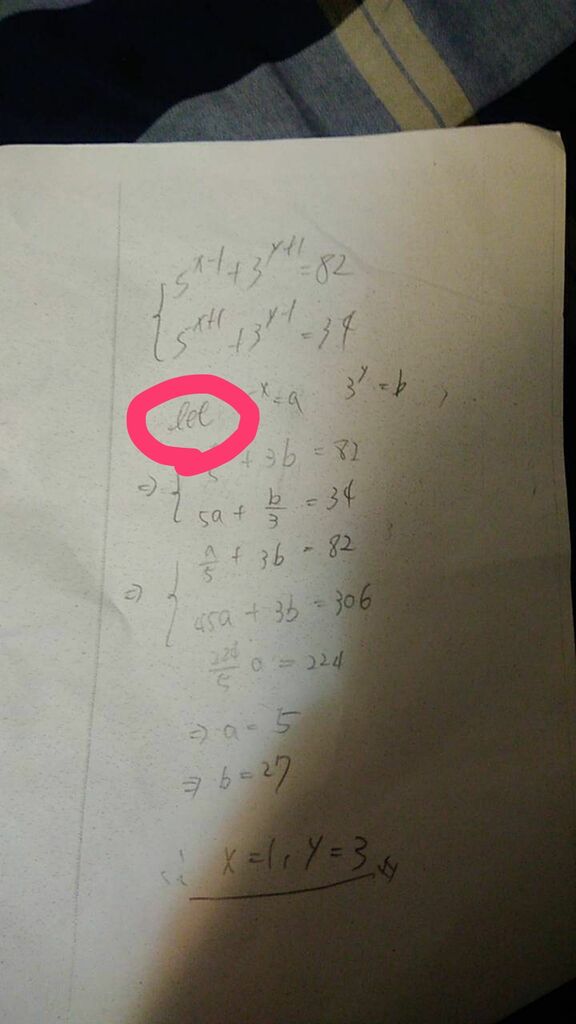 { 5^{x-1} + 3^{y+1} = 82
5^{x+1} + 3^{y-1} = 34
let x = a 3^y = b ,
⇒ { 5 + 3b = 82
5a + b/3 = 34
⇒ { a/5 + 3b = 82
45a + 3b = 306
224/5 a = 224
⇒ a = 5
⇒ b = 27
∴ x = 1, y = 3